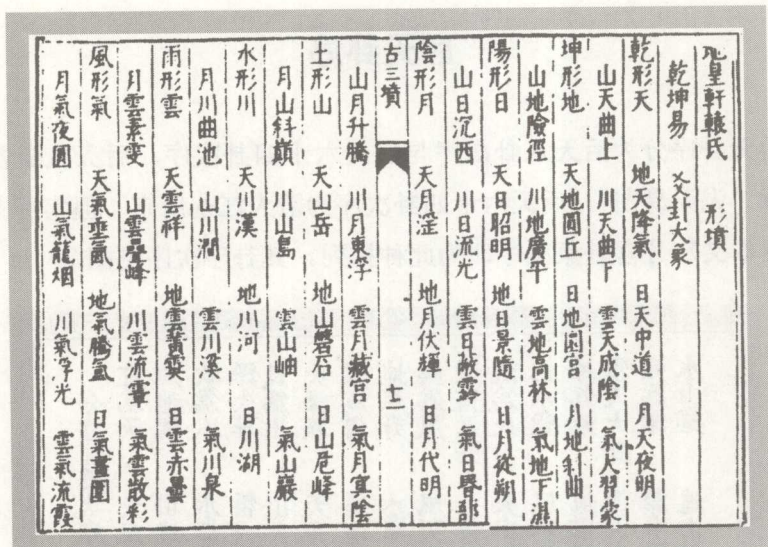 地皇軒轅氏 形墳
乾坤易 爻卦大象
乾形天 地天降氣 日天中道 月天夜明
山天曲上 川天曲下 雲天成陰 氣天習蒙
坤形地 天地圓丘 日地圜宮 月地斜曲
山地險徑 川地廣平 雲地高林 氣地下濕
陽形日 天日昭明 地日景隨 日月從朔
山日沉西 川日流光 雲日蔽霧 氣日昬蔀
陰形月 天月淫 地月伏輝 日月代明
古三墳 十二
山月升騰 川月東浮 雲月藏宮 氣月冥陰
土形山 天山岳 地山磐石 日山危峰
月山斜巔 川山島 雲山岫 氣山巖
水形川 天川漢 地川河 日川湖
月川曲池 山川澗 雲川溪 氣川泉
雨形雲 天雲祥 地雲黃霙 日雲赤曇
月雲素雯 山雲疊峰 川雲流 氣雲散彩
風形氣 天氣垂氤 地氣騰氳 日氣晝圍
月氣夜圓 山氣籠烟 川氣浮光 雲氣流霞